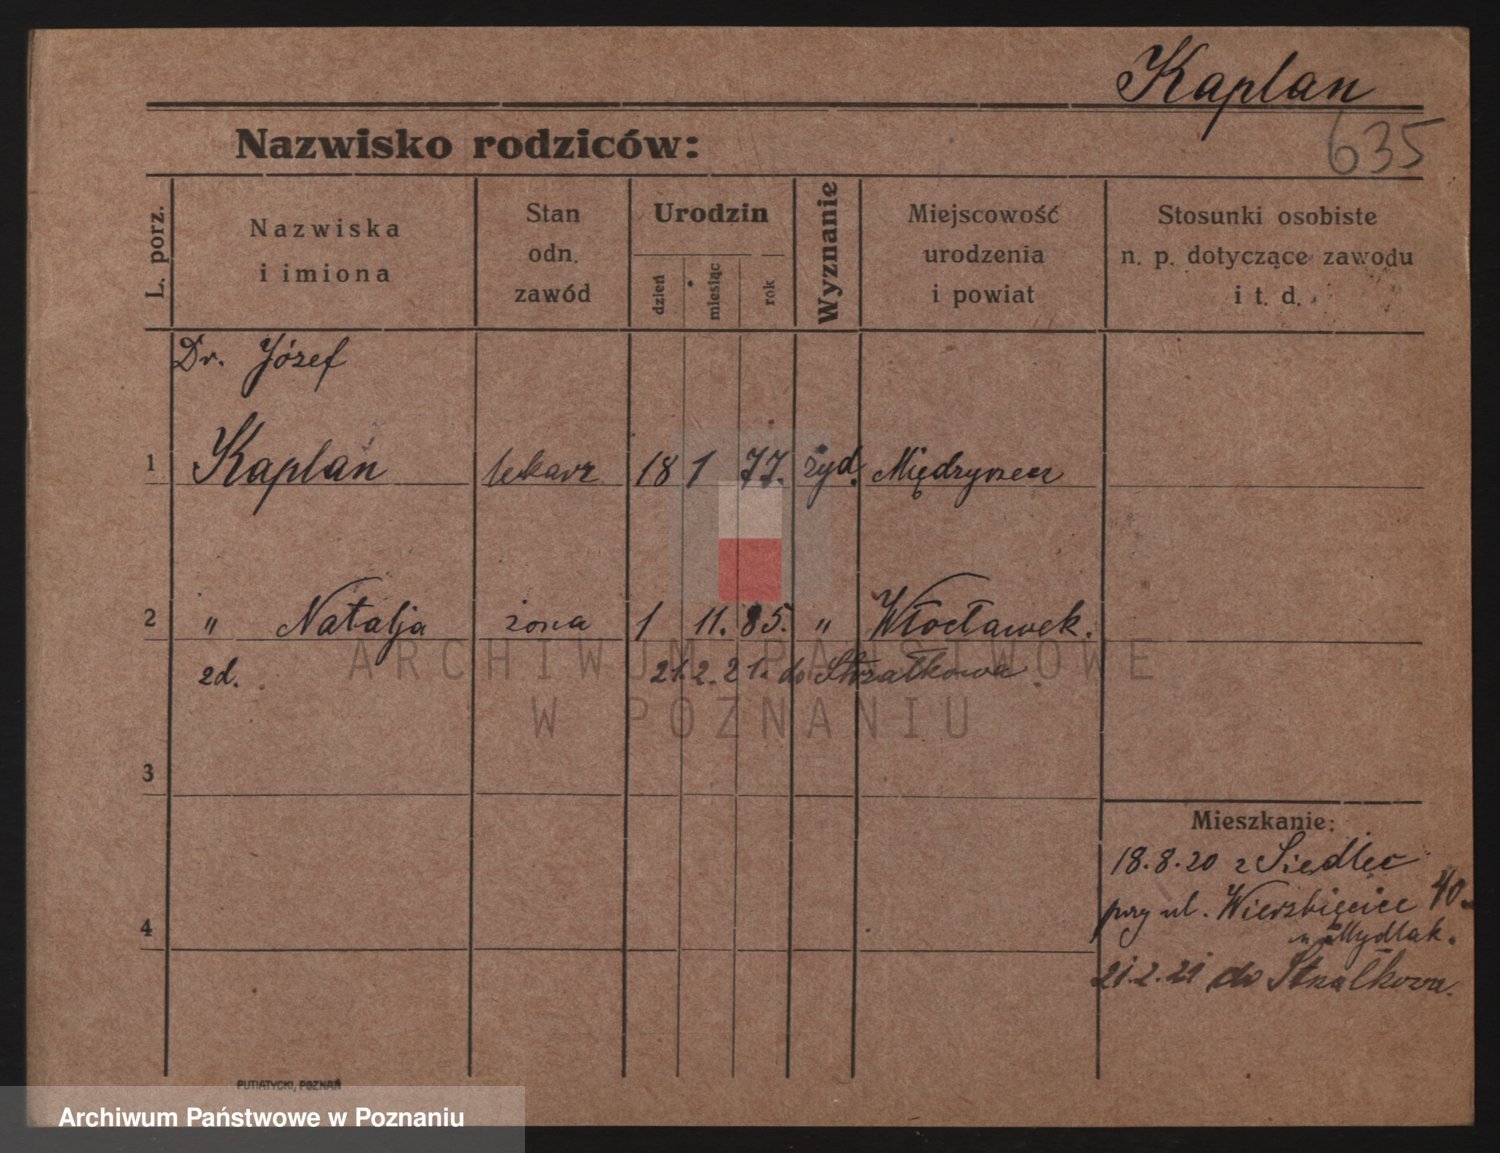 Kaplan
635
Nazwisko rodziców:
L. porz.
Nazwiska
i imiona
Stan
odn.
zawód
Urodzin
dzień
miesiąc
rok
Wyznanie
Miejscowość
urodzenia
i powiat
Stosunki osobiste
n. p. dotyczące zawodu
i t. d.
Dr. Józef
1 Kaplan lekarz 18 1 77. żyd. Międzyrzecz
2 " Natalja żona 1 11. 85. " Włocławek.
zd. 21.2.21. do Strzałkowa
ARCHIWUM PAŃSTWOWE
W POZNANIU
3
Mieszkanie:
18.8.20 z Siedlec
przy ul. Wierzbięcice 40.
4
u Mydlak.
21.2.21 do Strzałkowa.
PUTIATYCKI, POZNAŃ
Archiwum Państwowe w Poznaniu